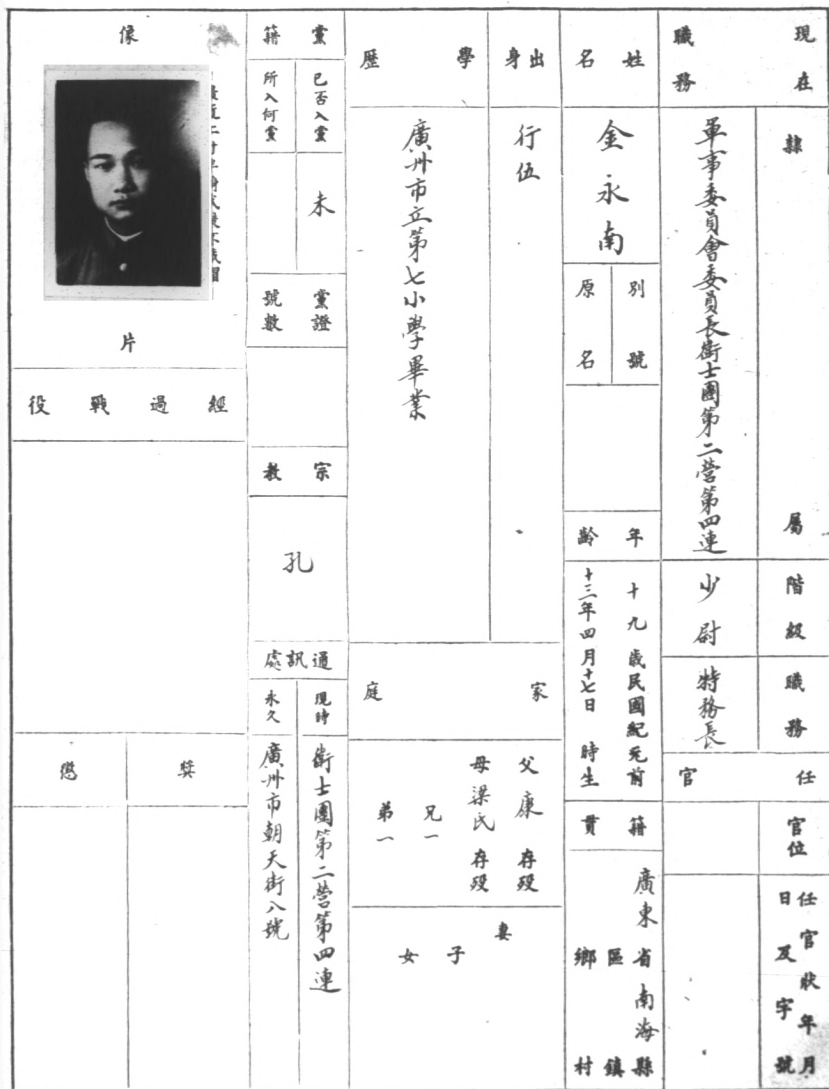 現在職務
隸屬
軍事委員會委員長衛士團第二營第四連
階級
少尉
職務
特務長
任官
官位
任官狀年月日及字號
姓名
金永南
別號
原名
年齡
十九歲民國紀元前
十三年四月十七日 時生
籍貫
廣東省南海縣
區鎮
鄉村
出身
行伍
學歷
廣州市立第七小學畢業
家庭
父康 存歿
母梁氏 存歿
兄一
弟一
妻
子
女
黨籍
已否入黨
未
所入何黨
黨證號數
宗教
孔
通訊處
現時
衛士團第二營第四連
永久
廣州市朝天街八號
像片
經過戰役
獎
懲